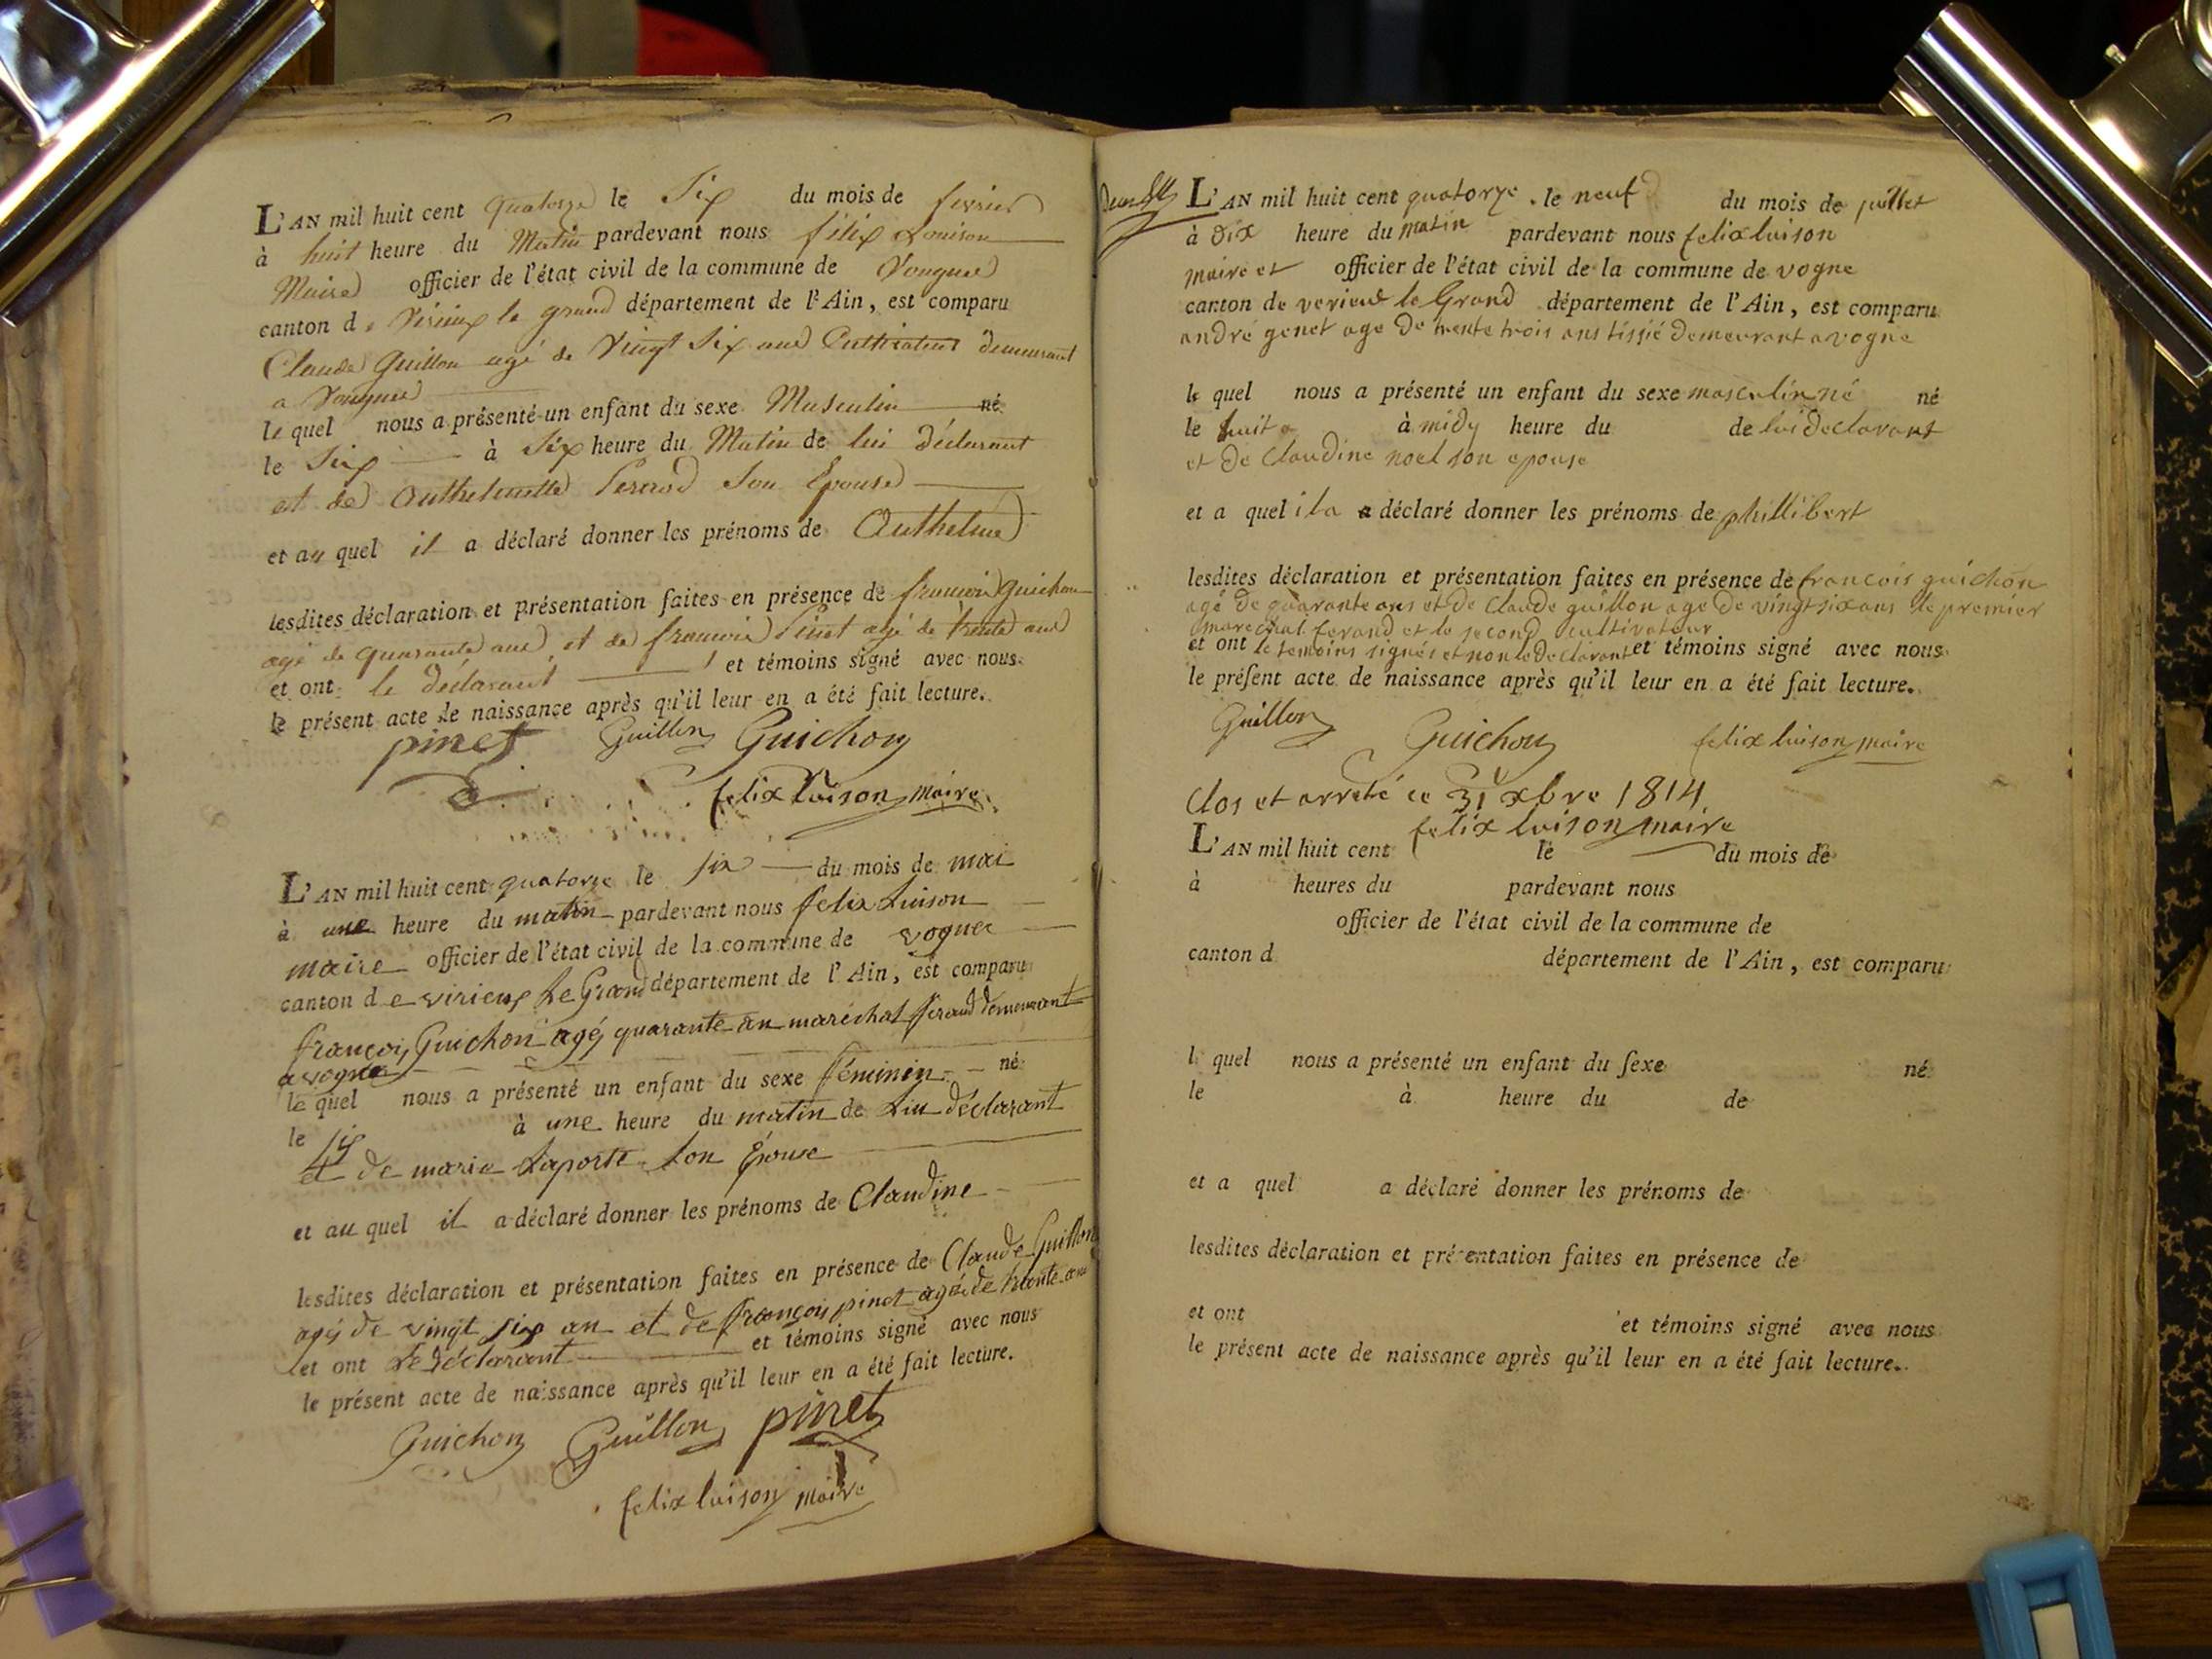 L'AN mil huit cent quatorze le Six du mois de fevrier
à huit heure du Matin pardevant nous félix Louison
Maire officier de l'état civil de la commune de Vougnes
canton de Virieux le grand département de l'Ain, est comparu
Claude Guillon agé de Vingt Six ans Cultivateur demeurant
a Vougnes
le quel nous a présenté un enfant du sexe Masculin né
le Six à Six heure du Matin de lui déclarant
et de Anthelmette Son Epouse
et au quel il a déclaré donner les prénoms de Anthelme
lesdites déclaration et présentation faites en présence de francois Guichon
agé de quarante ans, et de francois Pinet agé de trente ans
et ont le déclarant et témoins signé avec nous
le présent acte de naissance après qu'il leur en a été fait lecture.
pinet Guillon Guichon
felix luison maire
L'AN mil huit cent quatorze le six du mois de mai
à une heure du matin pardevant nous felix Luison
maire officier de l'état civil de la commune de vognes
canton de virieux Le Grand département de l'Ain, est comparu
françois Guichon agé quarante an maréchal ferand demeurant
a vogne
le quel nous a présenté un enfant du sexe féminin né
le six à une heure du matin de Lui déclarant
et de marie Laporte son Épouse
et au quel il a déclaré donner les prénoms de Claudine
lesdites déclaration et présentation faites en présence de Claude Guillon
agé de vingt six an et de françois pinet agé de trante an
et ont Le déclarant et témoins signé avec nous
le présent acte de naissance après qu'il leur en a été fait lecture.
Guichon Guillon pinet
felix luison maire
L'AN mil huit cent quatorze le neuf du mois de juillet
à dix heure du matin pardevant nous felix luison
maire et officier de l'état civil de la commune de vogne
canton de verieu le Grand département de l'Ain, est comparu
andré genet age de trente trois ans tissié demeurant a vogne
le quel nous a présenté un enfant du sexe masculin né né
le huit à midy heure du de lui declarant
et de Claudine noel son epouse
et a quel il a a déclaré donner les prénoms de phillibert
lesdites déclaration et présentation faites en présence de francois guichon
agé de quarante ans et de Claude guillon age de vingt six ans le premier
marechal ferand et le second cultivateur
et ont le temoins signés et non le declarant et témoins signé avec nous
le présent acte de naissance après qu'il leur en a été fait lecture.
Guillon Guichon felix luison maire
Clos et arreté ce 31 xbre 1814
felix luison maire
L'AN mil huit cent le du mois de
à heures du pardevant nous
officier de l'état civil de la commune de
canton d département de l'Ain, est comparu
l quel nous a présenté un enfant du sexe né
le à heure du de
et a quel a déclaré donner les prénoms de
lesdites déclaration et présentation faites en présence de
et ont et témoins signé avec nous
le présent acte de naissance après qu'il leur en a été fait lecture.